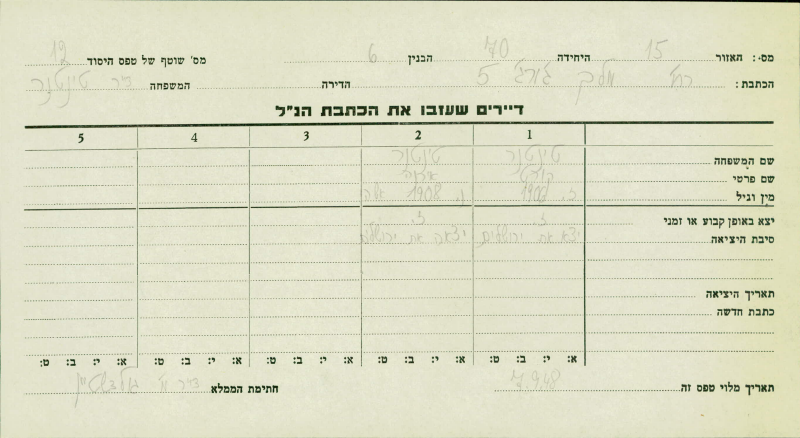 מס׳: האזור 15 היחידה 70 הבנין 6 מס׳ שוטף של טפס היסוד 12
הכתבת: רח׳ מלך ג׳ורג׳ 5 הדירה המשפחה ד״ר טינטנר
דיירים שעזבו את הכתבת הנ״ל
1 2 3 4 5
שם המשפחה טינטנר טינטנר
שם פרטי
מין וגיל ז. 1908 נ. 1908
יצא באופן קבוע או זמני ז. ז.
סיבת היציאה יצא את ירושלים יצאה את ירושלים
תאריך היציאה
כתבת חדשה
א: י: ב: ט: א: י: ב: ט: א: י: ב: ט: א: י: ב: ט: א: י: ב: ט:
תאריך מלוי טפס זה 7.9.48 חתימת הממלא